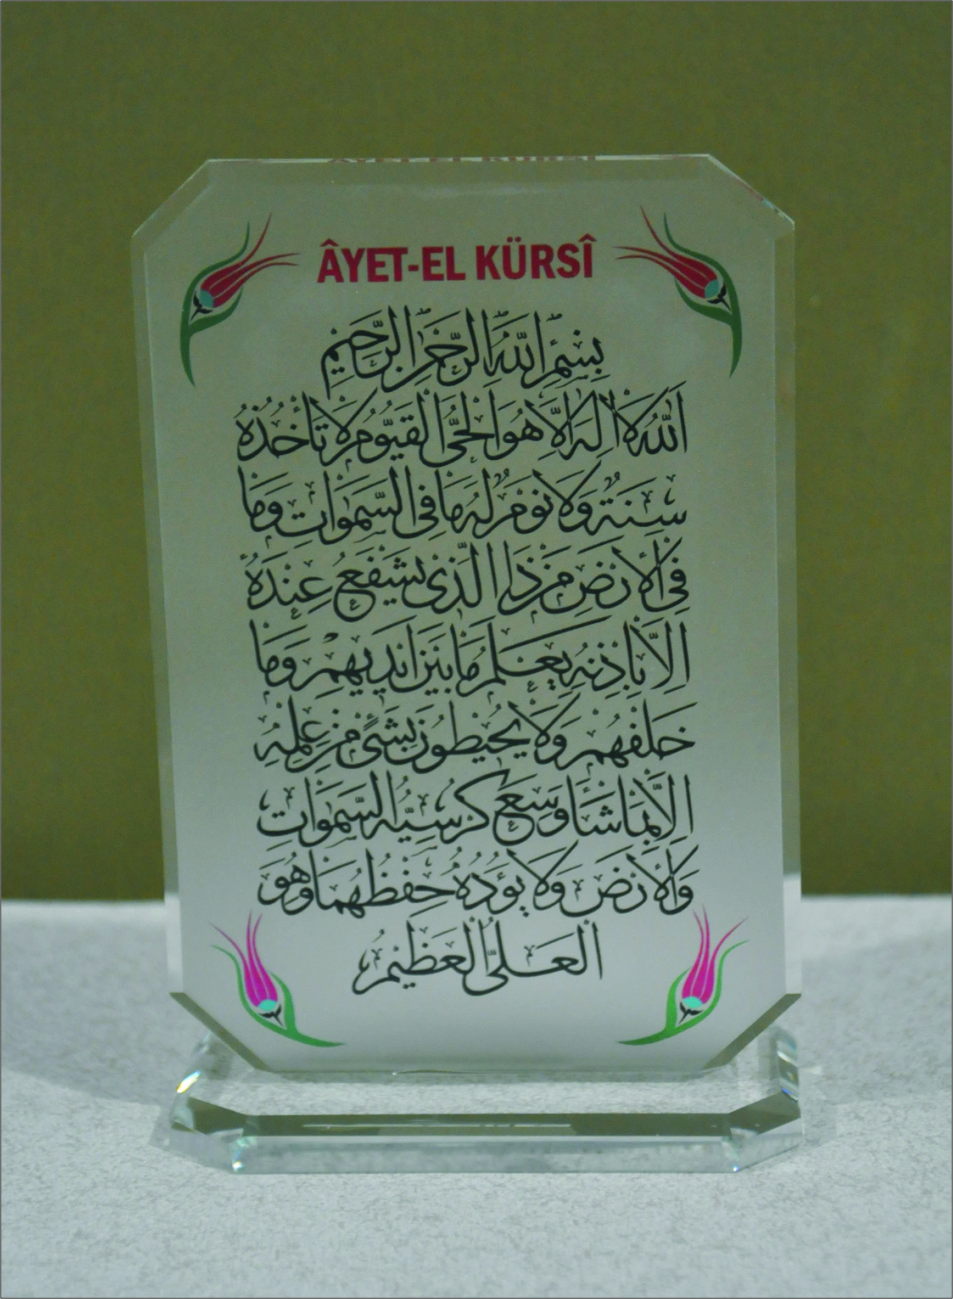 ÂYET-EL KÜRSÎ
بِسْمِ اللّٰهِ الرَّحْمٰنِ الرَّحِيمِ
اَللّٰهُ لَا اِلٰهَ اِلَّا هُوَ الْحَىُّ الْقَيُّومُ لَا تَأْخُذُهُ
سِنَةٌ وَلَا نَوْمٌ لَهُ مَا فِى السَّمٰوَاتِ وَمَا
فِى الْاَرْضِ مَنْ ذَا الَّذِى يَشْفَعُ عِنْدَهُ
اِلَّا بِاِذْنِهِ يَعْلَمُ مَا بَيْنَ اَيْدِيهِمْ وَمَا
خَلْفَهُمْ وَلَا يُحِيطُونَ بِشَىْءٍ مِنْ عِلْمِهِ
اِلَّا بِمَا شَاءَ وَسِعَ كُرْسِيُّهُ السَّمٰوَاتِ
وَالْاَرْضَ وَلَا يَؤُدُهُ حِفْظُهُمَا وَهُوَ
الْعَلِىُّ الْعَظِيمُ